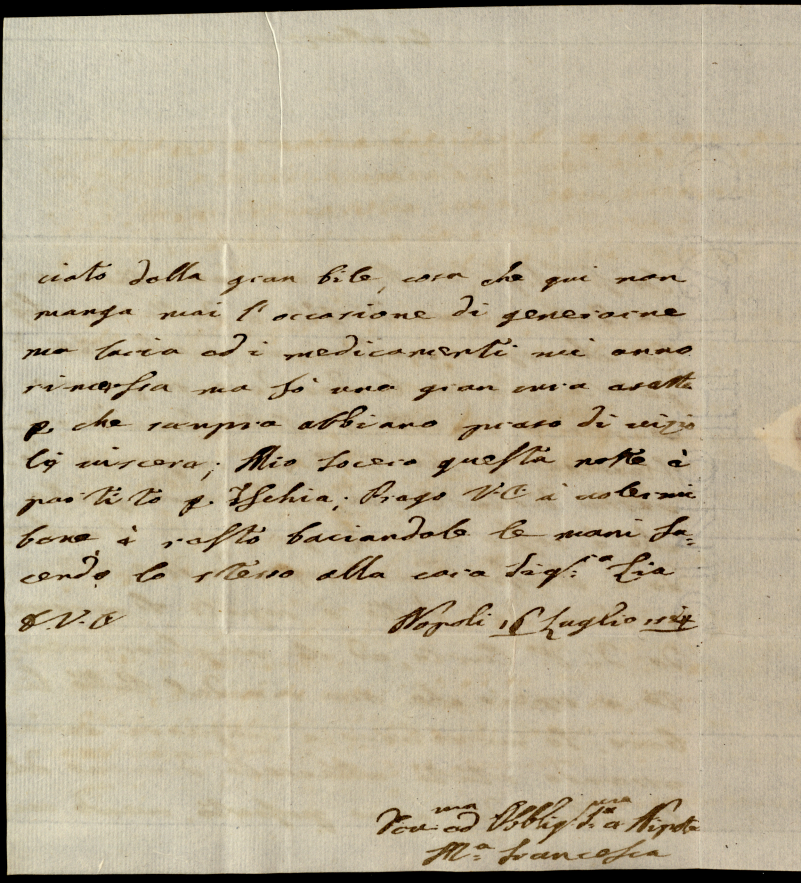 ciato dalla gran bile, cosa che qui non
manga mai l'occasione di generarne
ma lacia ad i medicamenti mi anno
rinfresca ma fò una gran cura asatta
p. che sempra abbiano preso di vizio
le viscera; Mio Socero questa notte à
partito p. Ischia; Prego V.E. à volermi
bene, è resto baciandole le mani fa=
cendo lo stesso alla cara Sig.ra Zia
D.V.E. Napoli 16 Luglio
ma ad Obblig.ma Nipote
M.a Francesca